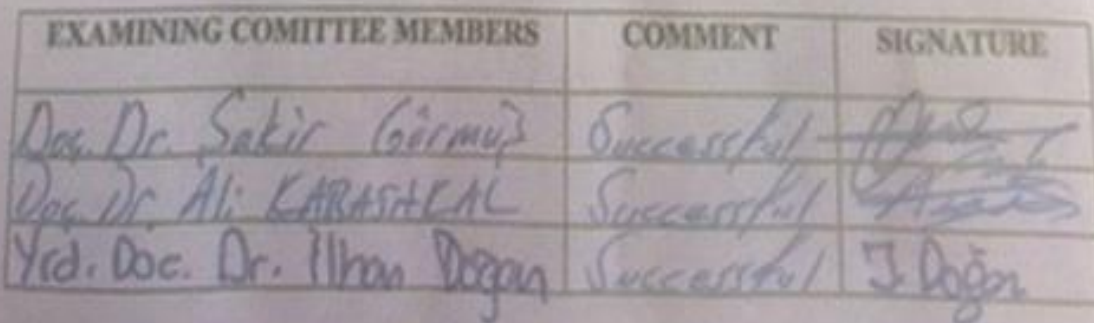 EXAMINING COMITTEE MEMBERS COMMENT SIGNATURE
Doc. Dr. Sakir Görmüş Successful
Doc. Dr. Ali KARASAKAL Successful
Yrd. Doc. Dr. İlhan Doğan Successful İ. Doğan